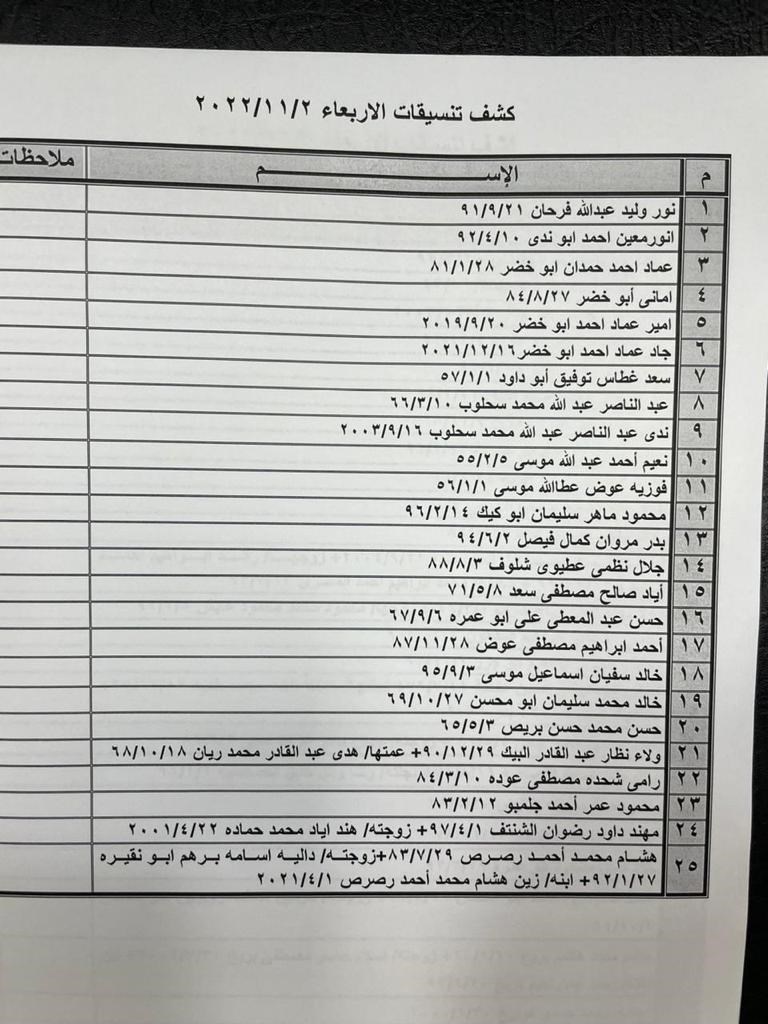 كشف تنسيقات الاربعاء ٢٠٢٢/١١/٢
م الإســـم ملاحظات
١ نور وليد عبدالله فرحان ٩١/٩/٢١
٢ انورمعين احمد ابو ندى ٩٢/٤/١٠
٣ عماد احمد حمدان ابو خضر ٨١/١/٢٨
٤ امانى أبو خضر ٨٤/٨/٢٧
٥ امير عماد احمد ابو خضر ٢٠١٩/٩/٢٠
٦ جاد عماد احمد ابو خضر٢٠٢١/١٢/١٦
٧ سعد غطاس توفيق أبو داود ٥٧/١/١
٨ عبد الناصر عبد الله محمد سحلوب ٦٦/٣/١٠
٩ ندى عبد الناصر عبد الله محمد سحلوب ٢٠٠٣/٩/١٦
١٠ نعيم أحمد عبد الله موسى ٥٥/٢/٥
١١ فوزيه عوض عطاالله موسى ٥٦/١/١
١٢ محمود ماهر سليمان ابو كيك ٩٦/٢/١٤
١٣ بدر مروان كمال فيصل ٩٤/٦/٢
١٤ جلال نظمى عطيوى شلوف ٨٨/٨/٣
١٥ أياد صالح مصطفى سعد ٧١/٥/٨
١٦ حسن عبد المعطى على ابو عمره ٦٧/٩/٦
١٧ أحمد ابراهيم مصطفى عوض ٨٧/١١/٢٨
١٨ خالد سفيان اسماعيل موسى ٩٥/٩/٣
١٩ خالد محمد سليمان ابو محسن ٦٩/١٠/٢٧
٢٠ حسن محمد حسن بريص ٦٥/٥/٣
٢١ ولاء نظار عبد القادر البيك ٩٠/١٢/٢٩+ عمتها/ هدى عبد القادر محمد ريان ٦٨/١٠/١٨
٢٢ رامى شحده مصطفى عوده ٨٤/٣/١٠
٢٣ محمود عمر أحمد جلمبو ٨٣/٢/١٢
٢٤ مهند داود رضوان الشنتف ٩٧/٤/١+ زوجته/ هند اياد محمد حماده ٢٠٠١/٤/٢٢
٢٥ هشام محمد أحمد رصرص ٨٣/٧/٢٩+زوجته/ داليه اسامه برهم ابو نقيره
٩٢/١/٢٧+ ابنه/ زين هشام محمد أحمد رصرص ٢٠٢١/٤/١